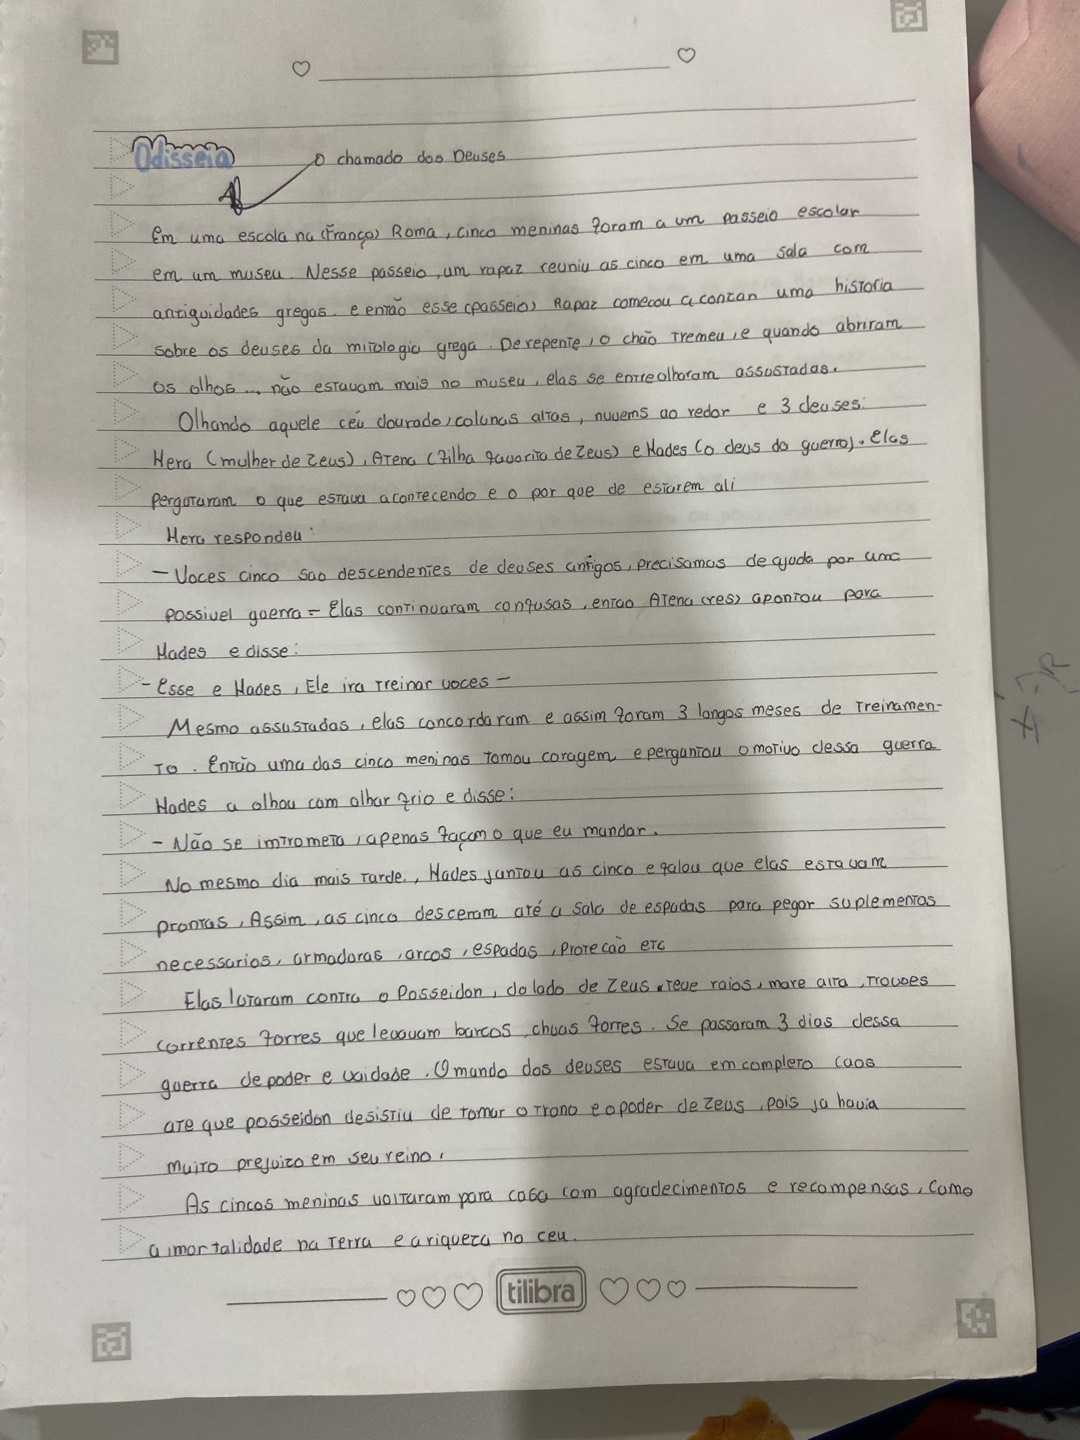 Odisseia
O chamado dos Deuses
Em uma escola na (França) Roma, cinco meninas foram a um passeio escolar
em um museu. Nesse passeio, um rapaz reuniu as cinco em uma sala com
antiguidades gregas e então esse (passeio) Rapaz começou a contan uma historia
sobre os deuses da mitologia grega. De repente, o chão tremeu, e quando abriram
os olhos... não estavam mais no museu, elas se entreolharam assustadas.
Olhando aquele céu dourado, colunas altas, nuvems ao redor e 3 deuses:
Hera (mulher de Zeus), Atena (filha favorita de Zeus) e Hades (o deus da guerra). Elas
pergutaram o que estava acontecendo e o por que de estarem ali
Hera respondeu:
- Voces cinco sao descendentes de deuses antigos, precisamos de ajuda por uma
possivel guerra - Elas continuaram confusas, entao Atena (res) apontou para
Hades e disse:
- Esse e Hades, Ele ira treinar voces -
Mesmo assustadas, elas concordaram e assim foram 3 longos meses de treinamen-
to. Então uma das cinco meninas tomou coragem e perguntou o motivo dessa guerra
Hades a olhou com olhar frio e disse:
- Não se imtrometa, apenas façam o que eu mandar.
No mesmo dia mais tarde, Hades juntou as cinco e falou que elas estavam
prontas, Assim, as cinco desceram até a sala de espadas para pegar suplementos
necessarios, armaduras, arcos, espadas, proteção etc
Elas lutaram contra o Posseidon, do lado de Zeus, teve raios, mare alta, trovoes
correntes fortes que levavam barcos, chuas fortes. Se passaram 3 dias dessa
guerra de poder e vaidade. O mundo dos deuses estava em completo caos
ate que posseidon desistiu de tomar o trono e o poder de Zeus, pois ja havia
muito prejuizo em seu reino.
As cincos meninas voltaram para casa com agradecimentos e recompensas, como
a imortalidade na terra e a riqueza no ceu.
tilibra